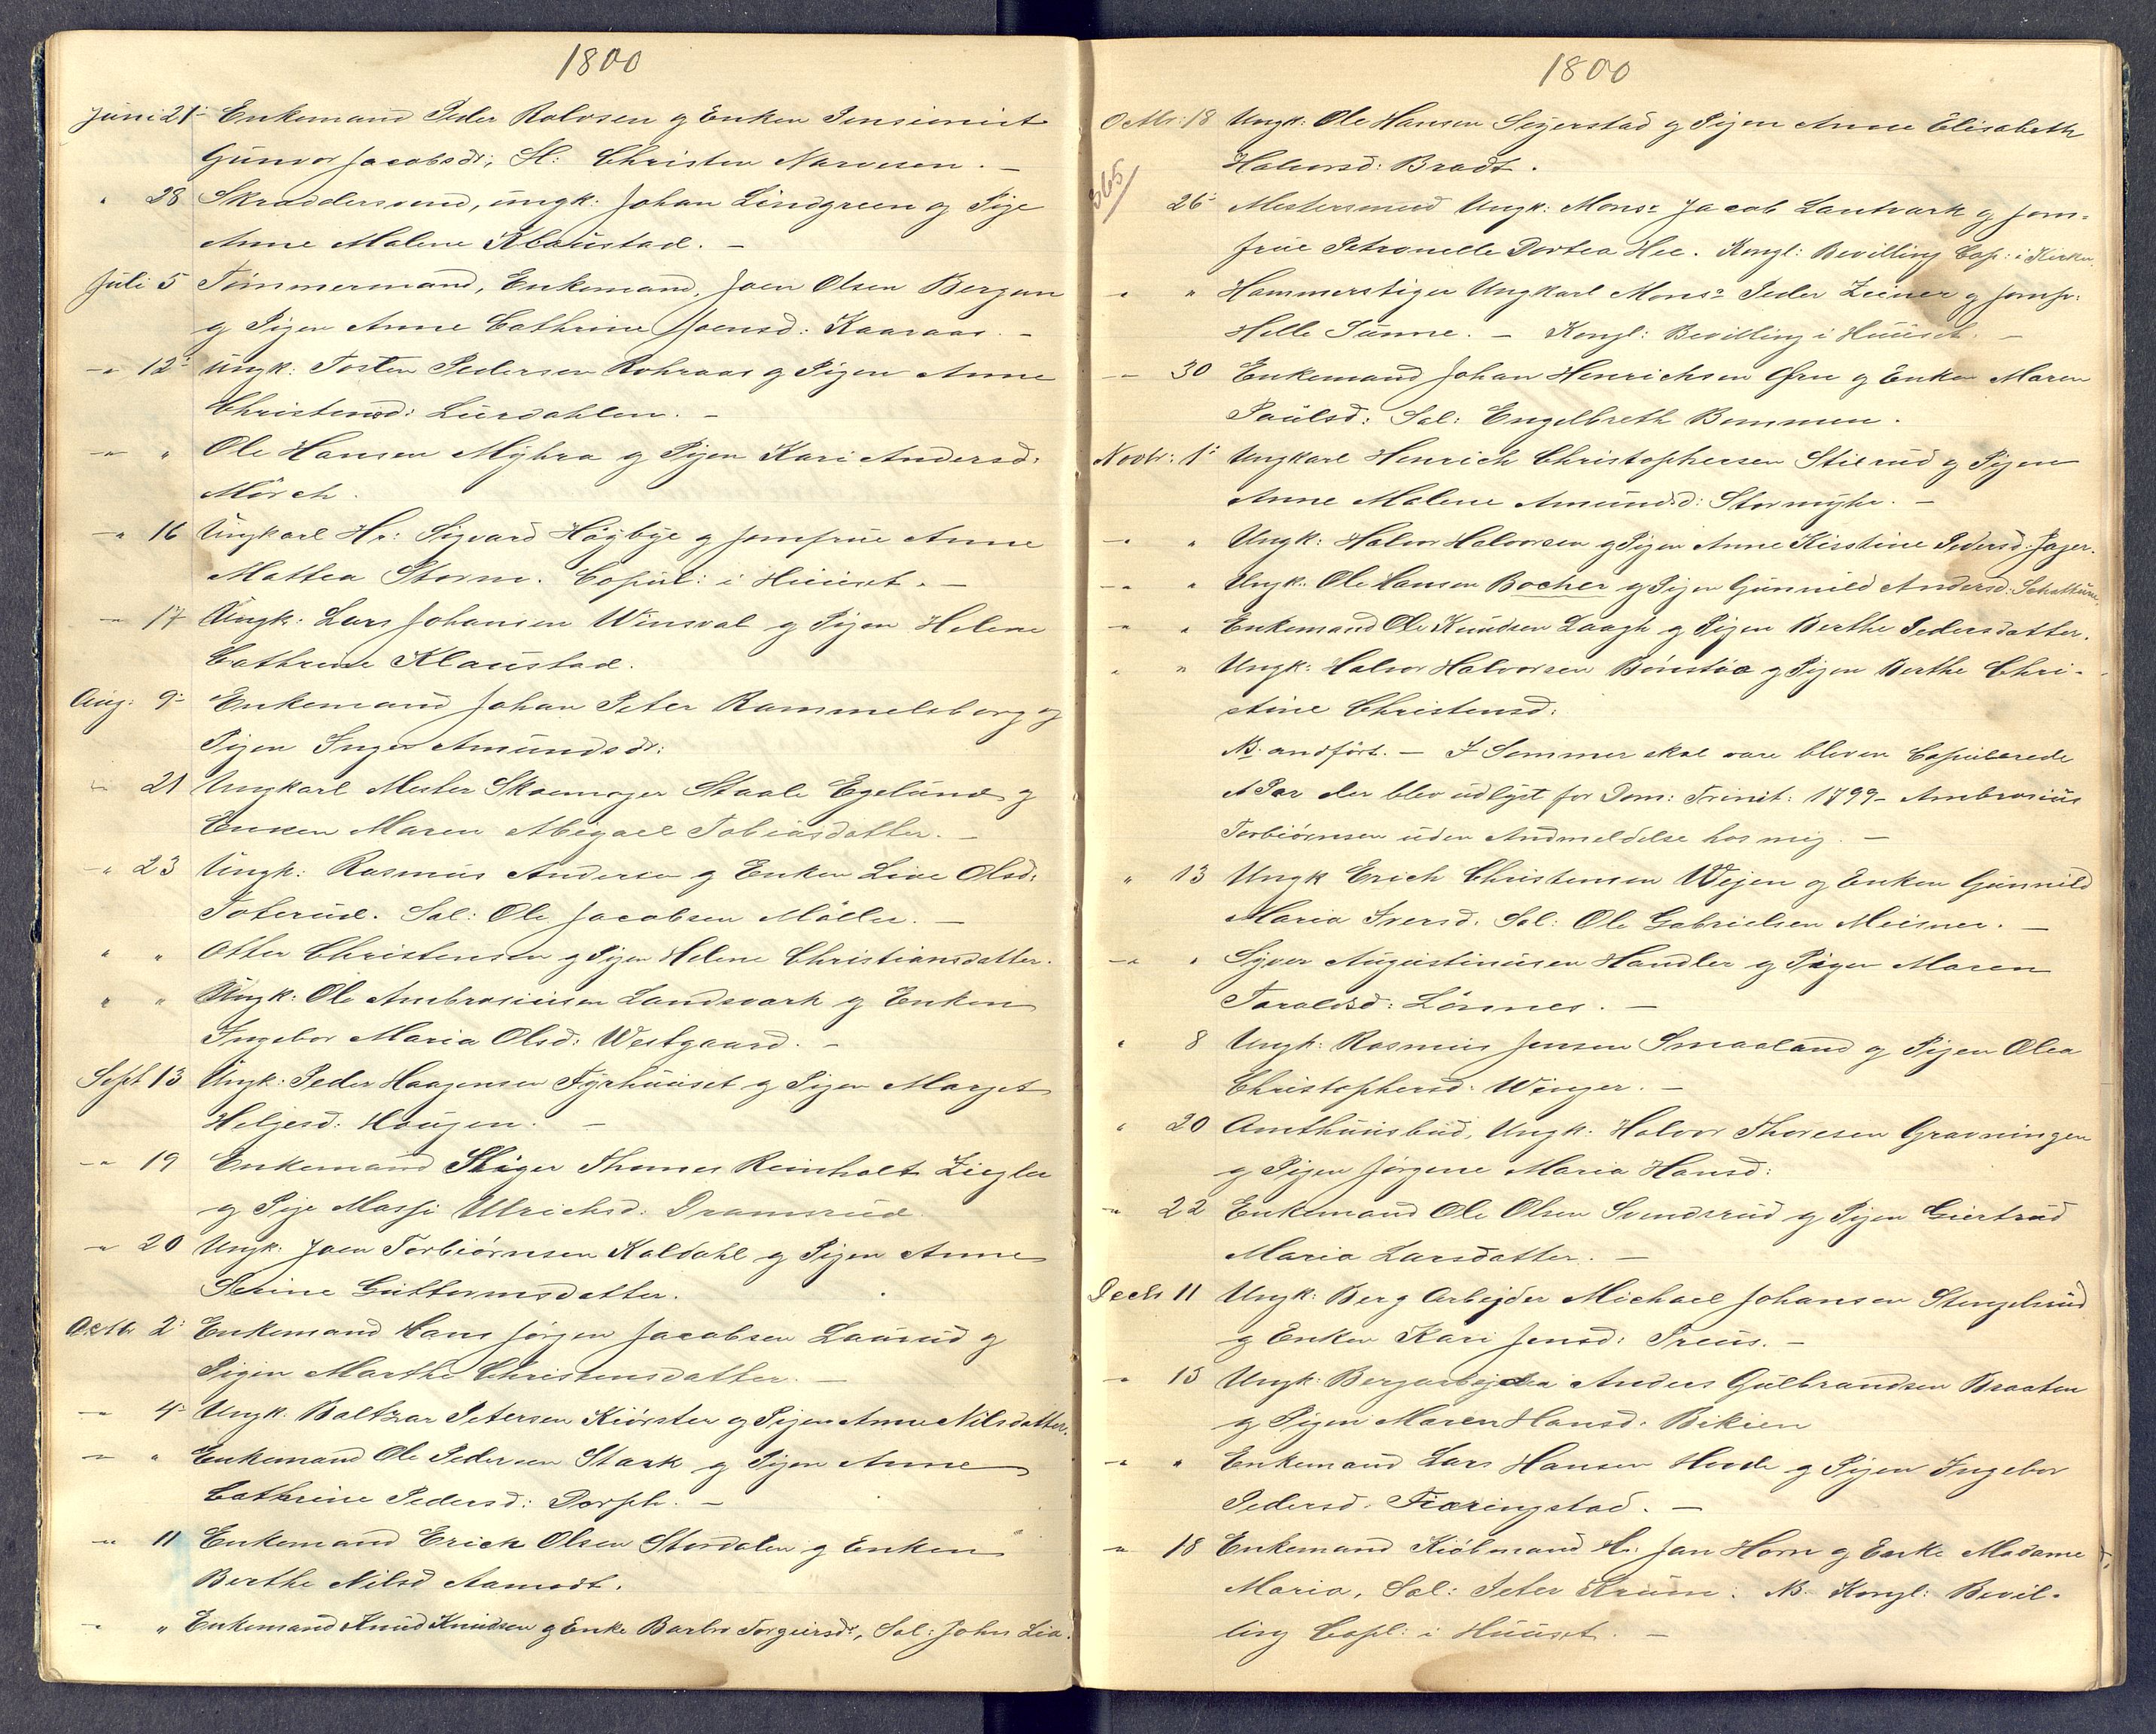 1800
Juni 21 Enkemand Peder Rolvsen og Enken Pensionist
Gunvor Jacobsdr; Sl: Christen Narvesen. —
" 28 Skræddersvend, ungk: Johan Lindgreen og Pige
Anne Malene Klaustad. —
Juli 5 Tömmermand, Enkemand, Joen Olsen Bergan
og Pigen Anne Cathrine Joensd: Kaaraas. —
—" 12 Ungk: Tosten Pedersen Rohraas og Pigen Anne
Christensd: Luurdahlen. —
—" " Ole Hansen Myhra og Pigen Kari Andersd:
Mörch.
—" 16 Ungkarl Hr: Sigvard Högbye og Jomfrue Anne
Mattea Storm. Copul: i Huuset. —
—" 17 Ungk: Lars Johansen Winsval og Pigen Helene
Cathrine Klaustad.
Aug: 9 Enkemand Johan Peter Rammelsberg og
Pigen Inger Amundsdr:
—" 21 Ungkarl Mester Skoemager Staale Egelund og
Enken Maren Abigael Tobiasdatter. —
—" 23 Ungk: Rasmus Andersen og Enken Live Olsd:
Toterud. Sal: Ole Jacobsen Möller. —
" " Otter Christensen og Pigen Helene Christiansdatter.
" " Ungk: Ole Ambrosiusen Landsvark og Enken
Ingebor Maria Olsd: Westgaard. —
Sept 13 Ungk: Peder Haagensen Fyrhuuset og Pigen Marget
Helgesd: Haugen. —
—" 19 Enkemand Stiger Thomes Reinholt Ziegler
og Pige Massi Ulrichsd: Dramsrud
—" 20 Ungk: Joen Torbiörnsen Kaldahl og Pigen Anne
Serine Guttormsdatter.
Octbr 2 Enkemand Hans Jörgen Jacobsen Laurud og
Pigen Marthe Christensdatter. —
—" 4 Ungk. Baltzar Petersen Kiörsten og Pigen Anne Nilsdatter.
—" " Enkemand Ole Pedersen Stark og Pigen Anne
Cathrine Pedersd: Dorph. —
—" 11 Enkemand Erick Olsen Stordalen og Enken
Berthe Nilsd Aamodt.
—" " Enkemand Knud Knudsen og Enke Barbro Torgiersdr, Sal: John Lia.
1800
Octbr: 18 Ungk: Ole Hansen Segerstad og Pigen Anne Elisabeth
Halvorsd: Bradt.
365
26 Mestersvend Ungk: Monsr Jacob Lantvark og Jom-
frue Petronelle Dortea Hee. Kongl: Bevilling Cop: i Kirken.
—" " Hammerstiger Ungkarl Monsr Peder Zeiner og Jomfr:
Helle Sünne. — Kongl: Bevilling i Huuset. —
—" 30 Enkemand Johan Henrichsen Gru og Enken Maren
Paulsd: Sal: Engelbreth Bemmen.
Novbr: 1 Ungkarl Henrich Christophersen Stilrud og Pigen
Anne Malene Amundsd: Stormyhr. —
—" " Ungk: Halvor Halvorsen og Pigen Anne Kisstine Pedersd: Jager.
—" " Ungk: Ole Hansen Bocher og Pigen Gunnild Andersd:
—" " Enkemand Ole Knudsen Laagh og Pigen Berthe Pedersdatter.
" " Ungk: Halvor Halvorsen Bönstöa og Pigen Berthe Chri-
stine Christensd:
NB. andfört. — I Sommer skal være bleven Copulerede
et Par der blev udlyst for Dom: Trinit: 1799 — Ambrosius
Torbiörnsen uden Andmeldelse hos mig. —
" 13 Ungk Erich Christensen Wejen og Enken Gunnild
Maria Iversd. Sal: Ole Gabrielsen Meisner. —
—" " Syver Augustinusen Handler og Pigen Maren
Taraldsd: Lönnes. —
" 8 Ungk: Rasmus Jensen Smaaland og Pigen Olea
Christophersd: Winger. —
" 20 Amthuusbud, Ungk: Halvor Thoresen Gravningen
og Pigen Jörgene Maria Hansd:
—" 22 Enkemand Ole Olsen Svendsrud og Pigen Giertrud
Maria Larsdatter. —
Decbr 11 Ungk: Berg Arbejder Michael Johansen Stengelsrud
og Enken Kari Jensd: Preus. —
—" 15 Ungk: Bergarbejder Anders Gulbrandsen Braaten
og Pigen Maren Hansd: Bikien
—" " Enkemand Lars Hansen Hvede og Pigen Ingebor
Pedersd. Fiæringstad. —
—" 18 Enkemand Kiöbmand Hr. Jan Horn og Enke Madame
Maria, Sal: Peter Krum: NB. Kongl: Bevil-
ling Copl: i Huuset. —